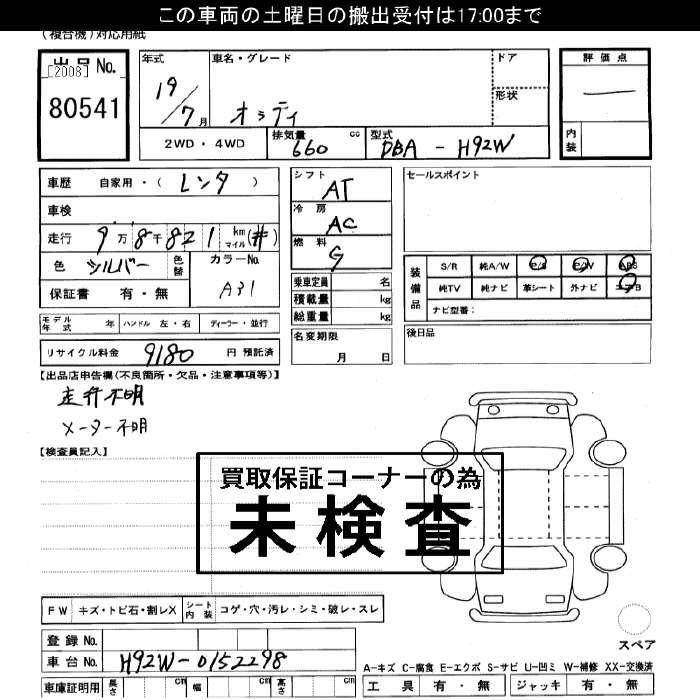 この車両の土曜日の搬出受付は17:00まで
(複合機)対応用紙
出品No.
[2008]
80541
年式
19/7月
車名・グレード
オッティ
ドア
形状
2WD・4WD
排気量 660 cc
型式 DBA - H92W
評価点
―
内装
車歴 自家用・( レンタ )
車検
走行 9万8千821 km マイル (#)
色 シルバー 色替
カラーNo. A31
保証書 有・無
シフト AT
冷房 AC
燃料 G
乗車定員 名
積載量 kg
総重量 kg
名変期限 月 日
セールスポイント
装備品
S/R 純A/W P/S P/W ABS
純TV 純ナビ 革シート 外ナビ エアB
ナビ型番:
後日品
モデル年式 年 ハンドル 左・右 ディーラー・並行
リサイクル料金 9180 円 預託済
【出品店申告欄(不良箇所・欠品・注意事項等)】
走行不明
メーター不明
【検査員記入】
買取保証コーナーの為
未検査
FW キズ・トビ石・割レX シート内装 コゲ・穴・汚レ・シミ・破レ・スレ
スペア
登録No.
車台No. H92W-0152298
車庫証明用 長さ cm 幅 cm 高さ cm
A-キズ C-腐食 E-エクボ S-サビ U-凹ミ W-補修 XX-交換済
工具 有・無 ジャッキ 有・無